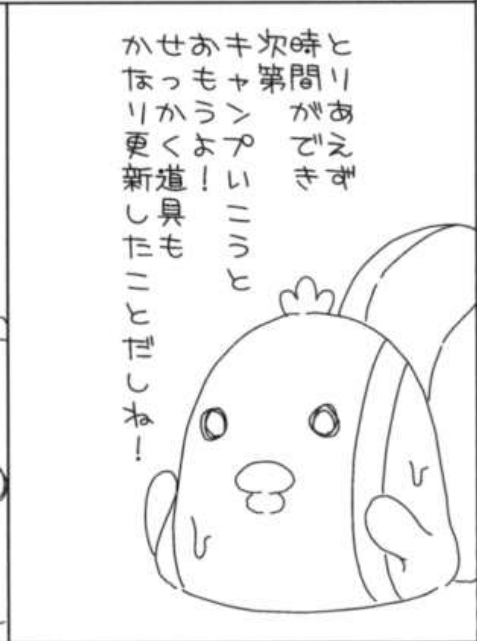 とりあえず
時間ができ
次第
キャンプいこうと
おもうよ！
せっかく道具も
かなり更新したことだしね！